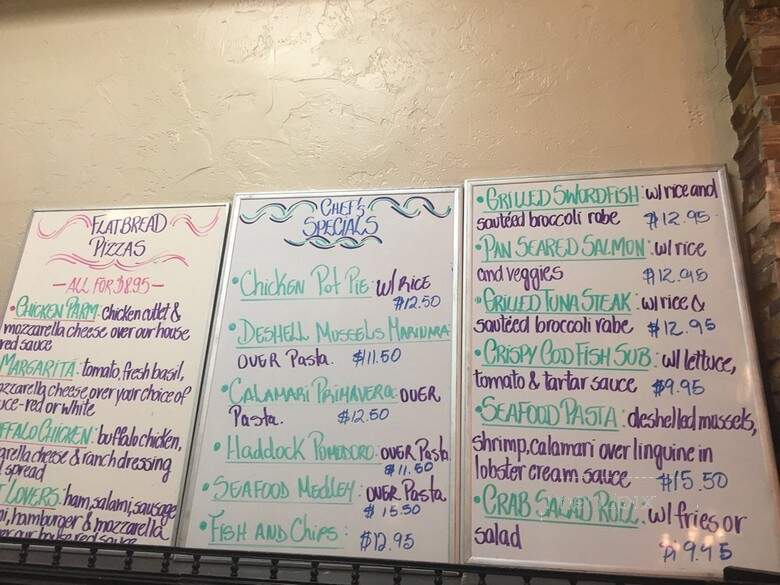 FLATBREAD
PIZZAS
- ALL FOR $8.95 -
• CHICKEN PARM: chicken cutlet &
mozzarella cheese over our house
red sauce
MARGARITA: tomato, fresh basil,
zzarella cheese over your choice of
uce-red or white
FFALO CHICKEN: buffalo chicken,
arella cheese & ranch dressing
spread
LOVERS: ham, salami, sausage
hamburger & mozzarella
CHEF'S
SPECIALS
• CHICKEN POT PIE w/ RICE
$12.50
• DESHELL MUSSELS MARINARA
OVER Pasta. $11.50
• CALAMARI PRIMAVERA: OVER
Pasta. $12.50
• HADDOCK POMODORO: OVER Pasta
$11.50
• SEAFOOD MEDLEY: OVER Pasta
$15.50
• FISH AND CHIPS: $12.95
• GRILLED SWORDFISH: w/ rice and
sautéed broccoli rabe $12.95
• PAN SEARED SALMON: w/ rice
and veggies $12.95
• GRILLED TUNA STEAK: w/ rice &
sautéed broccoli rabe $12.95
• CRISPY COD FISH SUB: w/ lettuce,
tomato & tartar sauce $9.95
• SEAFOOD PASTA: deshelled mussels,
shrimp, calamari over linguine in
lobster cream sauce $15.50
• CRAB SALAD ROLL: w/ fries or
salad $9.45